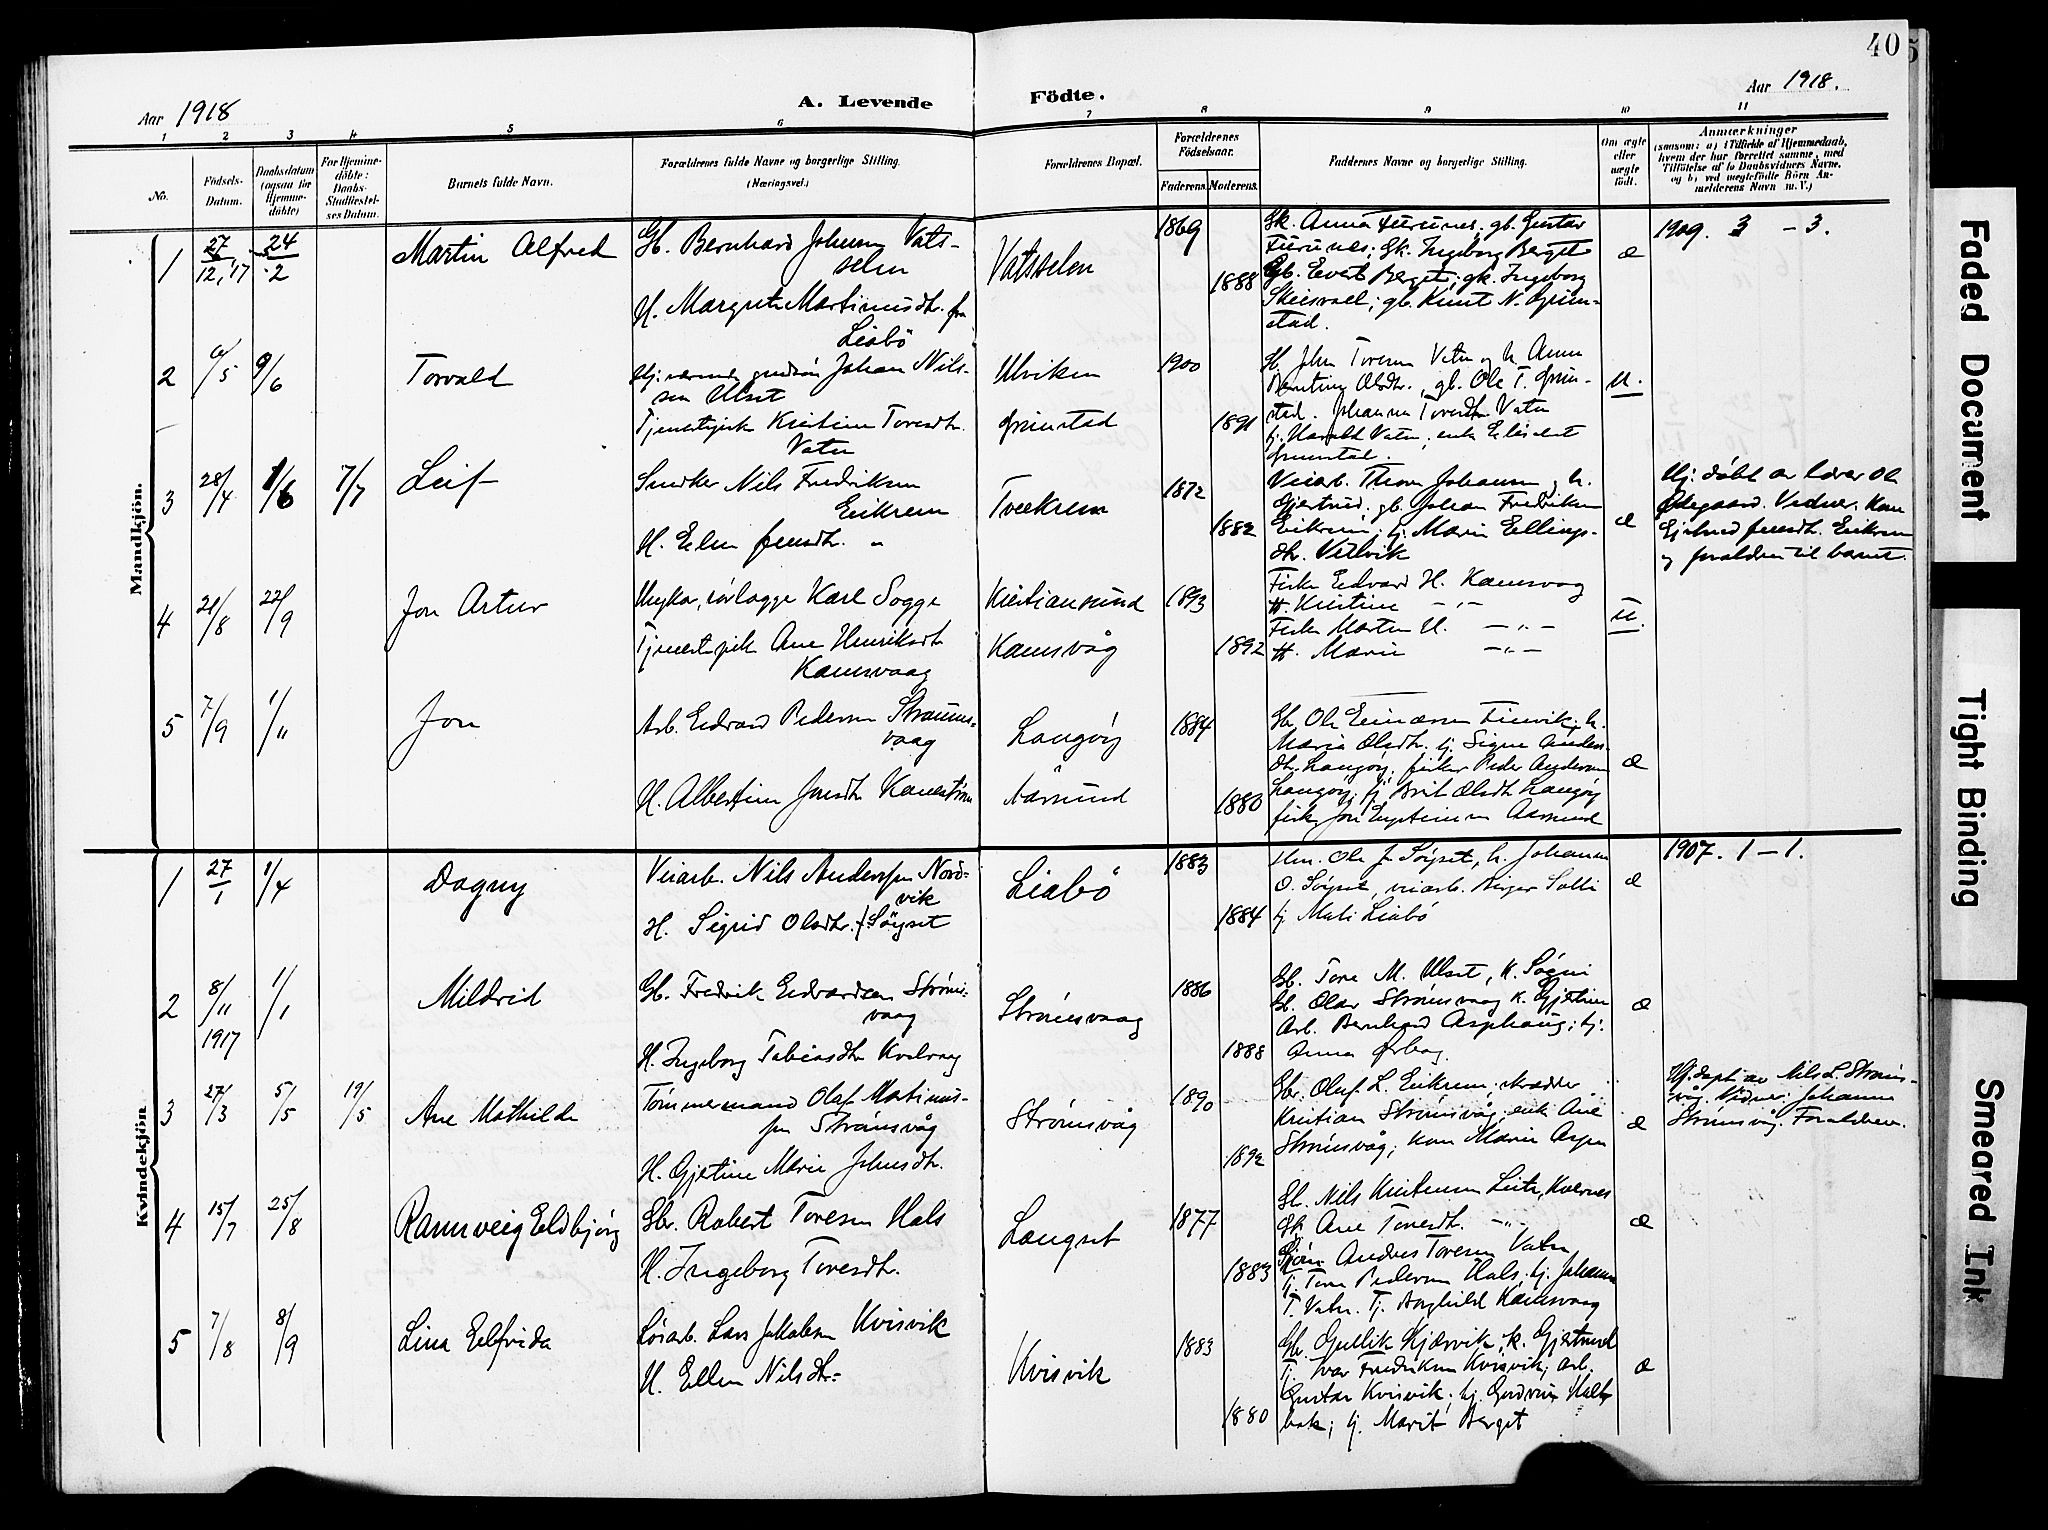 40
Aar 1918
A. Levende Födte.
Aar 1918.
1 2 3 4 5 6 7 8 9 10 11
No.
Födsels-
Datum.
Daabsdatum
(ogsaa for
Hjemme-
döbte)
For Hjemme-
döbte:
Daabs-
Stadfæstel-
ses Datum.
Barnets fulde Navn.
Forældrenes fulde Navne og borgerlige Stilling.
(Næringsvei.)
Forældrenes Bopæl.
Forældrenes
Födselsaar.
Faderens. Moderens.
Faddernes Navne og borgerlige Stilling.
Om ægte
eller
uægte
födt.
Anmærkninger
(saasom: a) i Tilfælde af Hjemmedaab,
hvem der har forrettet samme, med
Tilföielse af to Daabsvidners Navne,
og b) ved uægtefödte Börn An-
melderens Navn m. V.)
Mandkjön.
1
27/12,'17
24/2
Martin Alfred
Gb. Bernhard Johnsen Vats-
selen
H. Margrete Martinusdtr. fra
Liabö
Vatsselen
1869
1888
Gk. Anna Furunes; gb. Gustav
Furunes; Gk. Ingeborg Berget
Gb. Evert Berget; gk. Ingeborg
Skeisvoll; gb. Knut N. Grim-
stad.
æ
1909. 3 - 3.
2
9/6
Torvald
Hj. værende gardsön Johan Nils-
sen Ulset
Tjenestepike Kristine Toresdtr.
Vatn
Ulviken
Grimstad
1900
1891
H. John Toresen Vatn og h. Anne
Olsdtr., gb. Ole T. Grim-
stad. Johanna Toresdtr. Vatn
tj. Harald Vatn, enke Elisabet
Grimstad.
u.
3
28/4
1/6
7/7
Leif
Snedker Nils Fredriksen
Eikrem
H. Elen Jensdtr. "
Tvekrem
1872
1882
Veiarb. Thore Johansen og h.
Gjertrud. gb. Johan Fredriksen
Eikrem; tj. Marie Ellings-
dtr. Vullvik
æ
Hj. döbt av lærer Ol
Ødegaard. Vidner. Kone
Gjertrud Jensdtr. Eikrem
og forældre til barnet.
4
21/8
22/9
Jon Artur
Ungkar, rörlægger Karl Sogge
Tjenestpike Ane Henriksdtr
Kamsvaag
Kristiansund
Kamsvåg
1893
1892
Fisker Edvard H. Kamsvaag
H. Kristine -"-
Fisker Morten H. -"-
H. Marie -"-
u.
5
7/9
1/11
Jon
Arb. Edvard Pedersen Strøms-
vaag
H. Albertine Jonsdtr Kanestrøm
Langöy
Aarsund
1884
1880
Gbr. Ole Einarsen Finvik; h.
Maria Olsdtr. tj. Signe Anders-
dtr. Langöy; fisker Peder Andersen
Langöy; tj. Brit Olsdtr Langöy
fisker Jon Aarsund
æ
Kvindekjön
1
27/1
1/4
Dagny
Veiarb. Nils Anderssen Nord-
vik
H. Sigrid Olsdtr. f. Söyset
Liabö
1883
1884
Hm. Ole J. Söyset, h. Johanna
O. Söyset, veiarb. Birger Solli
tj. Mali Liabö
æ
1907. 1 - 1.
2
8/11
1917
1/1
Mildrid
Gb. Fredrik Edvardsen Ströms-
vaag
H. Ingeborg Tobiasdtr Kvalvaag
Strömsvaag
1886
1888
Gb. Tore M. Ulset, k. Sögni
Gb. Olav Strömsvaag k. Gjertine
Arb. Bernhard Asphaug; tj.
Anna
æ
3
27/3
5/5
19/5
Ane Mathilde
Tömmermand Olaf Martinus-
sen Strömsvåg
H. Gjetine Marie Johnsdtr.
Strömsvåg
1890
1892
Gbr. Oluf L. Eikrem; skrædder
Kristian Strömsvåg, enke Ane
Strömsvåg; kone Marie Aspen
æ
Hj. döpt av Nils L. Ströms-
våg. Vidner: Johanne
Strömsvåg. Forældrene.
4
15/7
25/8
Rannveig Eldbjörg
Gbr. Robert Toresen Hals
H. Ingeborg Toresdtr.
Langset
1877
1883
Gb. Nils Kristensen Leite, Kvernes
Gk Ane Toresdtr. -"-
Andres Toresen Vatn
tj. Tore Pedersen Hals; tj. Johanna
T. Vatn. Tj. Borghild Kamsvaag
æ
5
7/8
8/9
Lina Elfrida
Lösarb. Lars Jakobsen Kvisvik
H. Ellen Nilsdtr.
Kvisvik
1883
1880
Gb. Gullik Kjærvik, k. Gjertrud
Tj. Ivar Fredriksen Kvisvik; arb.
Gustav Kvisvik; tj. Gudrun Hals
bak; tj. Marit Berget
æ
Faded Document
Tight Binding
Smeared Ink